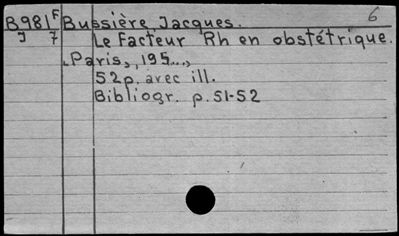 6
B981 F Bussière, Jacques.
J 7 Le Facteur Rh en obstétrique.
Paris, 195...,
52p. avec ill.
Bibliogr. p. 51-52